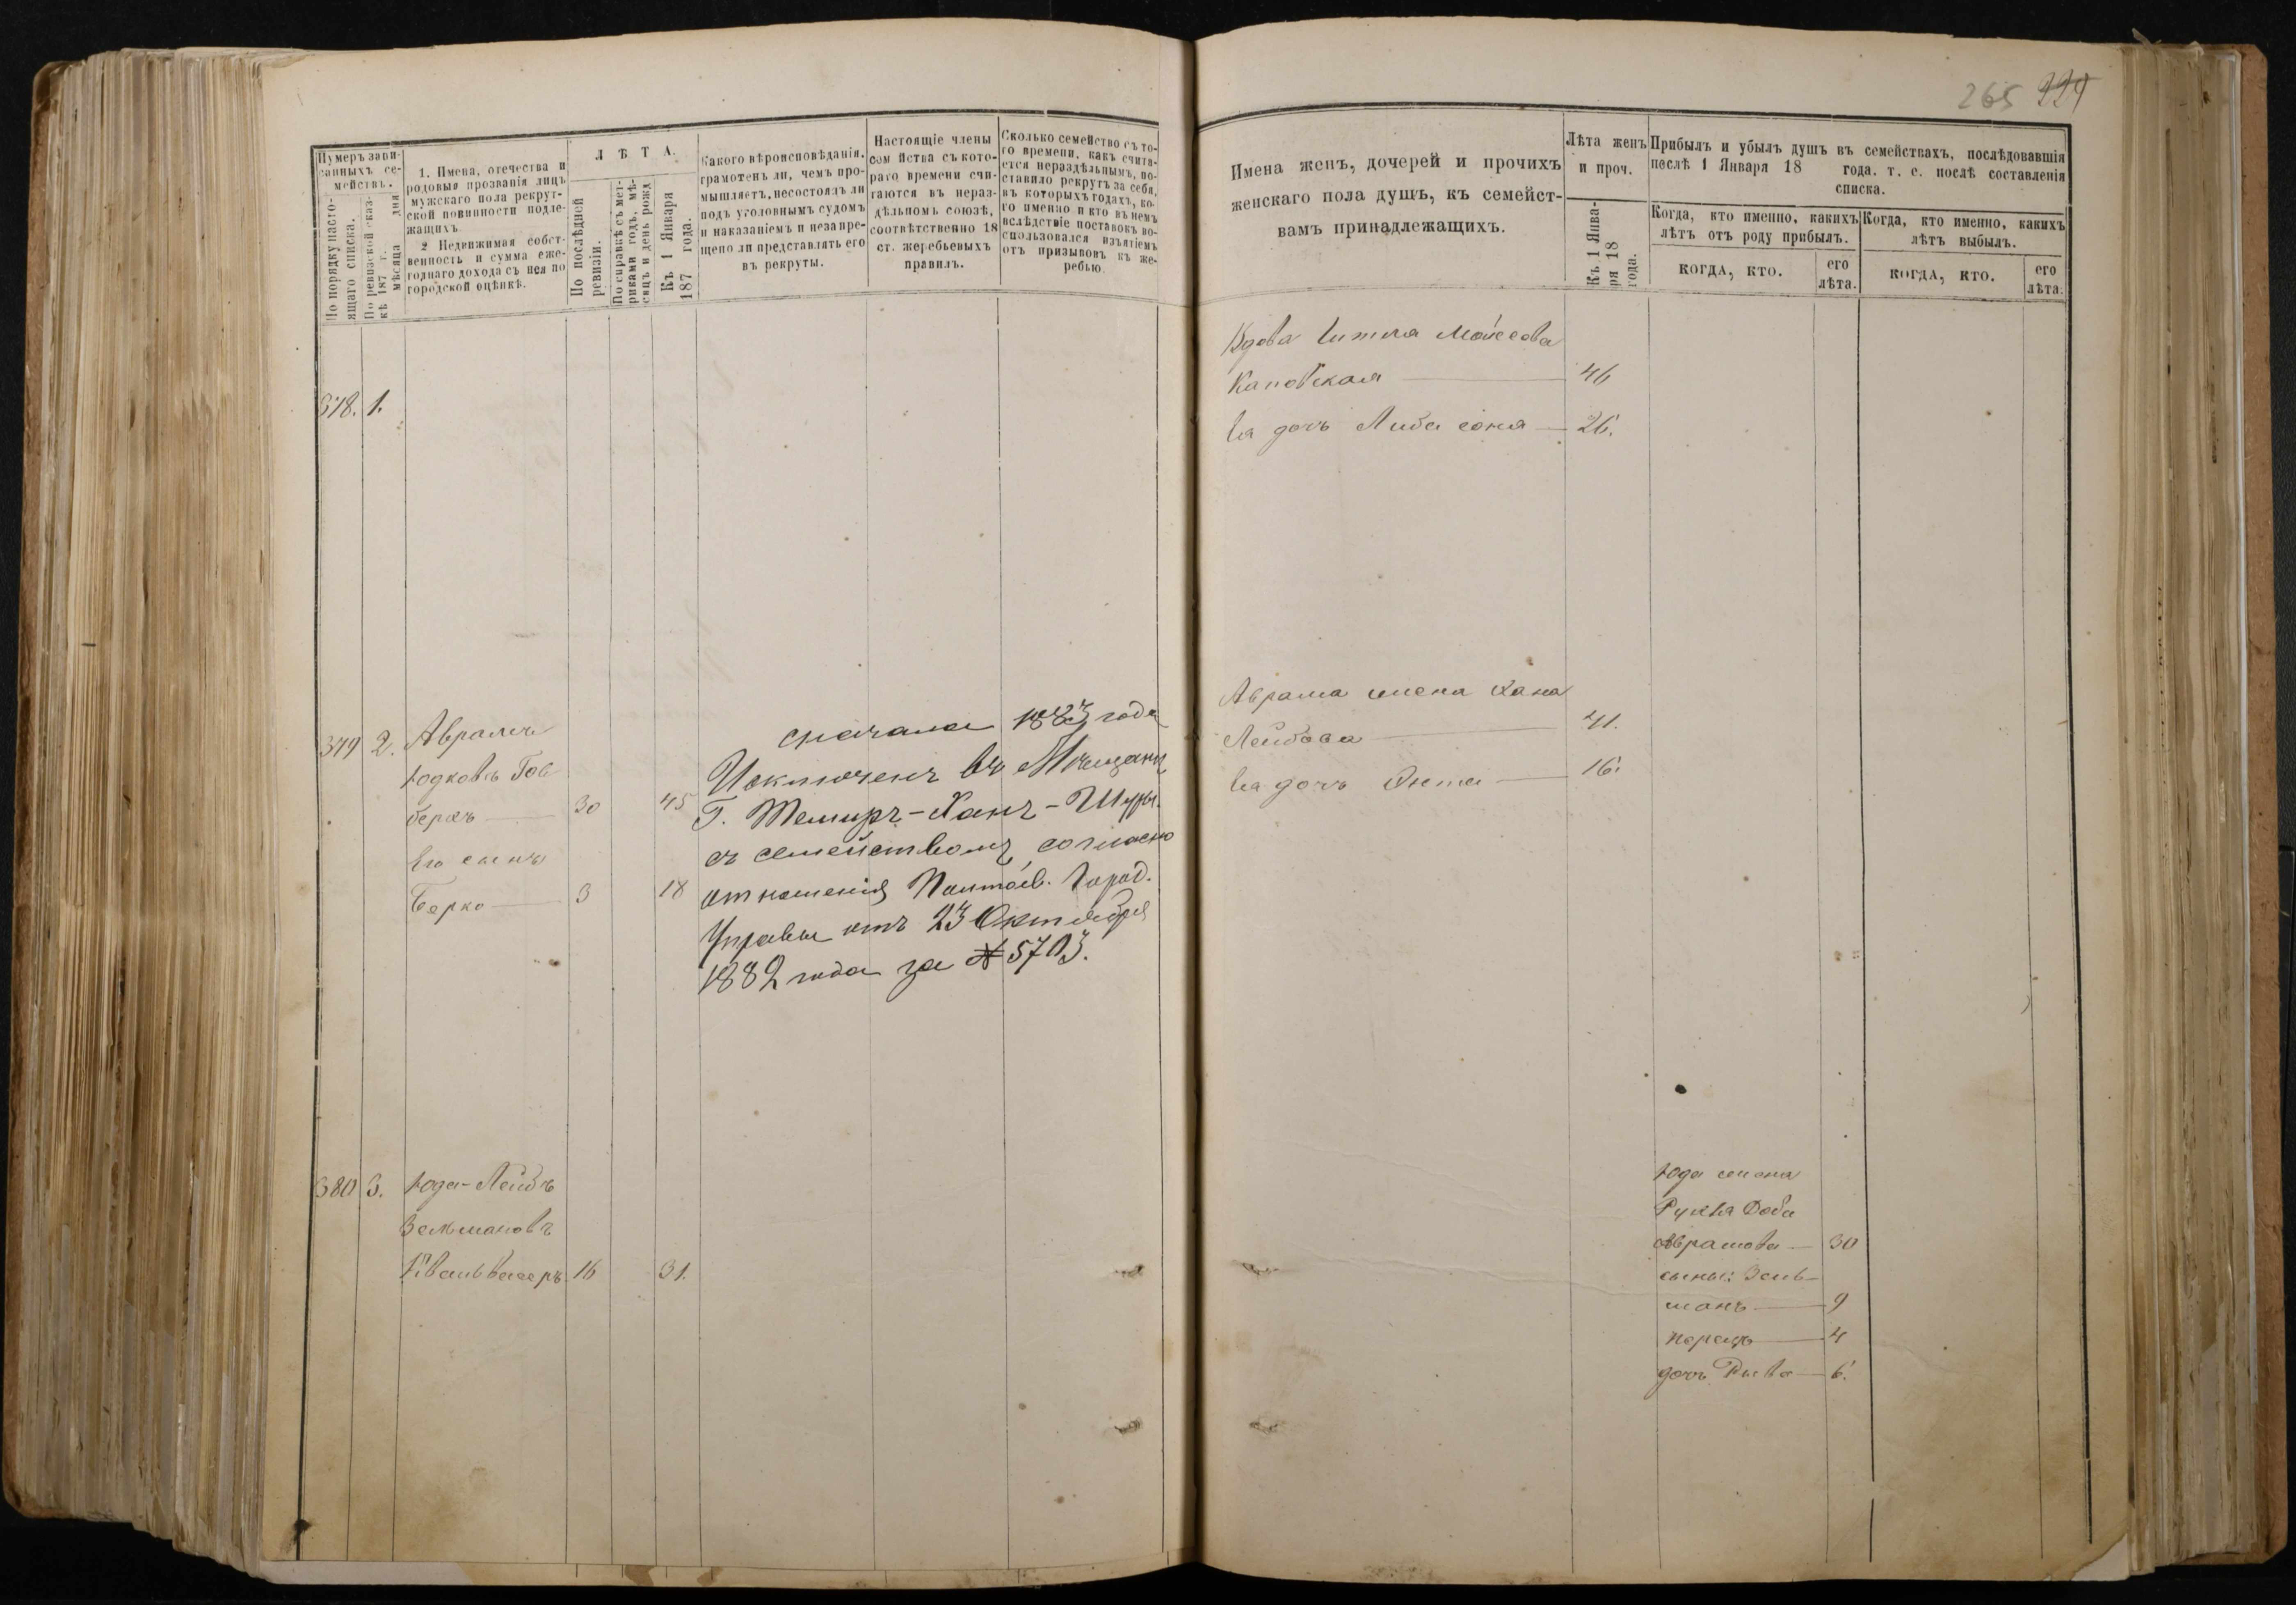 Нумеръ запи-
санныхъ се-
мействъ.
По порядку насто-
ящаго списка.
По ревизской сказ-
кѣ 187 г.
мѣсяца дня
1. Имена, отечества и
родовыя прозванія лицъ
мужскаго пола рекрут-
ской повинности подле-
жащихъ
2 Недвижимая собст-
венность и сумма еже-
годнаго дохода съ нея по
городской оцѣнкѣ.
Л Ѣ Т А.
По послѣдней
ревизіи.
По справкѣ съ мет-
риками годъ, мѣ-
сяцъ и день рожд
Къ 1 Января
187 года.
Какого вѣроисповѣданія.
грамотенъ ли, чемъ про-
мышляетъ, несостоялъ ли
подъ уголовнымъ судомъ
и наказаніемъ и незапре-
щено ли представлять его
въ рекруты.
Настоящіе члены
сем йства съ кото-
раго времени счи-
таются въ нераз-
дѣльномъ союзѣ,
соотвѣтственно 18
ст. жеребьевыхъ
правилъ.
Сколько семейство съ то-
го времени, какъ счита-
ется нераздѣльнымъ, по-
ставило рекрутъ за себя,
въ которыхъ годахъ, ко-
го именно и кто въ немъ
вслѣдствіе поставокъ во-
спользовался изъятіемъ
отъ призывовъ къ же-
ребью.
378. 1.
379 2. Аврамъ
Юдковъ Гов
берхъ 30 45
Его сынъ
Берко 3 18
сначала 1883 года
Исключенъ въ Мѣщане
Г. Темиръ-Ханъ-Шуры.
съ семействомъ, согласно
отношенія Полтав. Город.
Управы отъ 23 Октября
1882 года за № 5703.
380 3. Юда-Лейбъ
Зельмановъ
16 31.
265 229
Имена женъ, дочерей и прочихъ
женскаго пола душъ, къ семейст-
вамъ принадлежащихъ.
Лѣта женъ
и проч.
Къ 1 Янва-
ря 18
года.
Прибылъ и убылъ душъ въ семействахъ, послѣдовавшія
послѣ 1 Января 18 года. т. е. послѣ составленія
списка.
Когда, кто именно, какихъ
лѣтъ отъ роду прибылъ.
КОГДА, КТО.
его
лѣта.
Когда, кто именно, какихъ
лѣтъ выбылъ.
КОГДА, КТО.
его
лѣта.
Вдова Гитля Мойсеова
Каповская 46
Ея дочь Либа соня 26.
Аврама жена Хана
Лейбова 41.
Ея дочь 16.
Юда жена
Рухля Доба
Абрамова 30
сыны: Зель-
манъ 9
Перецъ 4
дочь Рыва 6.